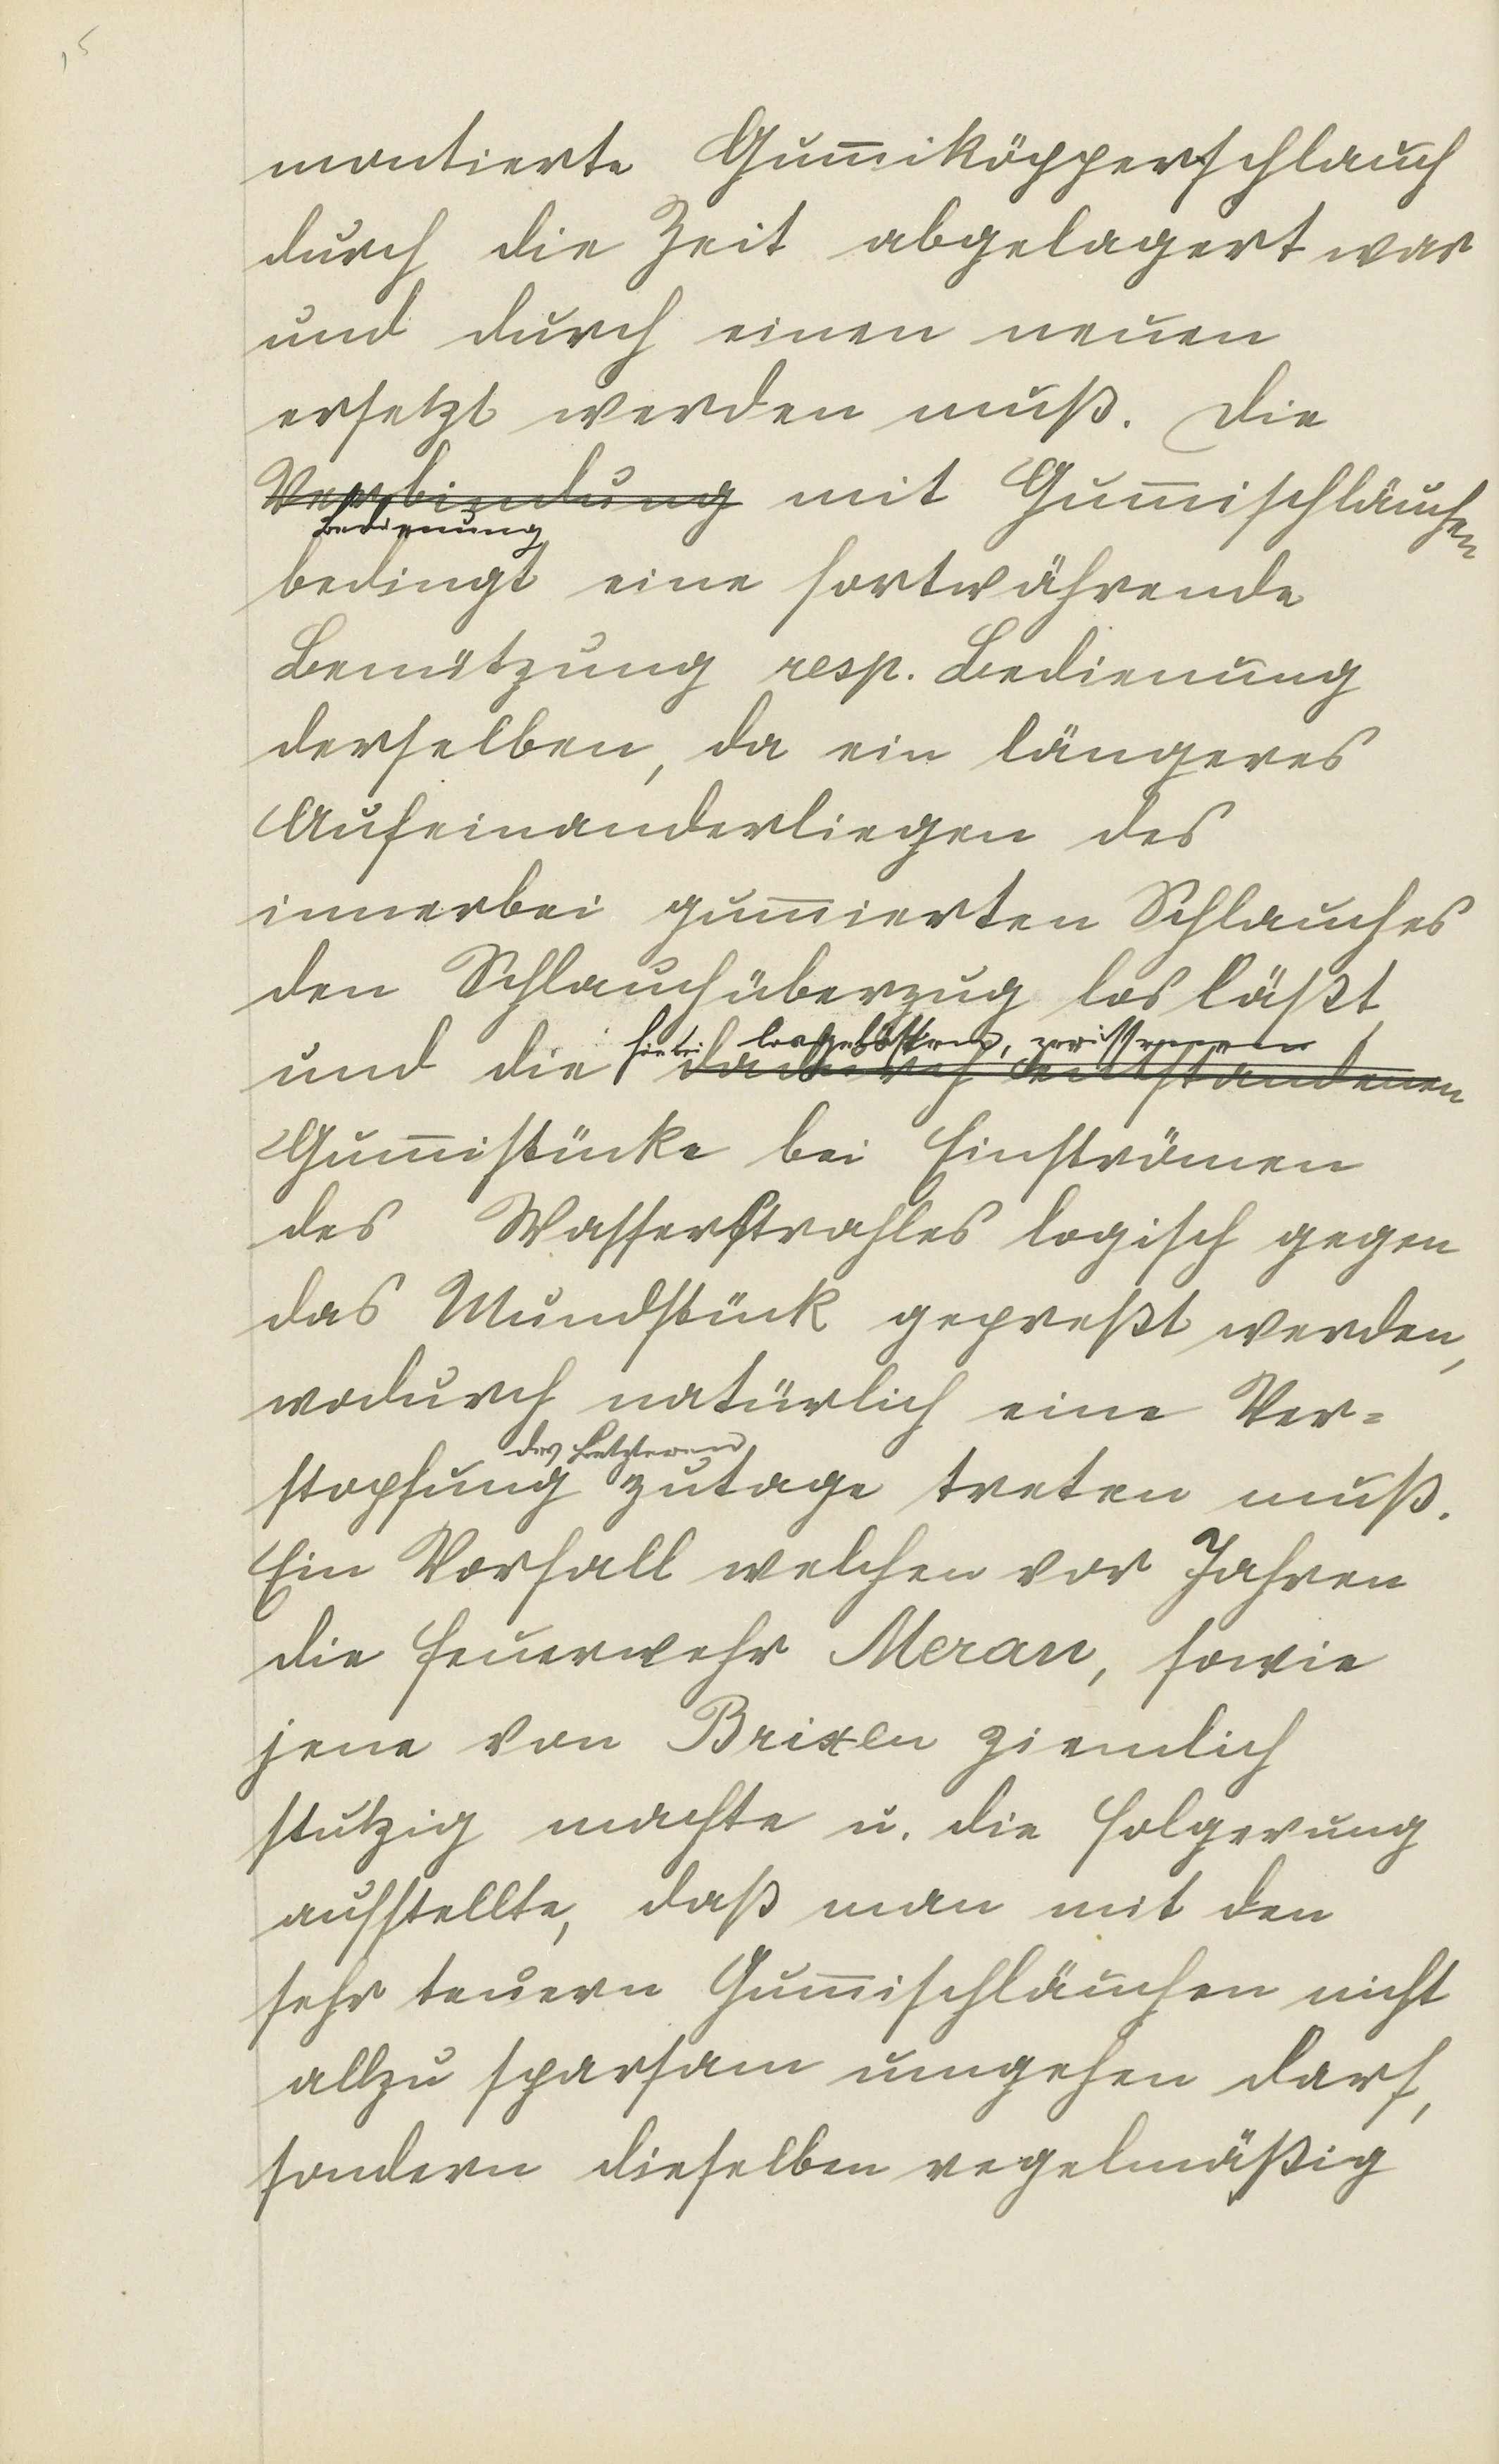 15
montierte Gummiköpperschlauch
durch die Zeit abgelagert war
und durch einen neuen
ersetzt werden muß. Die
Verbindung mit Gummischläuchen
Bedienung
bedingt eine fortwährende
Benützung resp. Bedienung
derselben, da ein längeres
Aufeinanderliegen des
innerbei gummierten Schlauches
den Schlauchüberzug los läßt
hiebei losgelösten, zerissenen
und die dadurch entstandenen
Gummistücke bei Einströmen
des Wasserstrahles logisch gegen
das Mundstück gepreßt werden,
wodurch natürlich eine Ver=
des Letzteren
stopfung zutage treten muß.
Ein Vorfall welchen vor Jahren
die Feuerwehr Meran, sowie
jene von Brixen ziemlich
stutzig machte u. die Folgerung
aufstellte, daß man mit den
sehr teuern Gummischläuchen nicht
allzu sparsam umgehen darf,
sondern dieselben regelmäßig